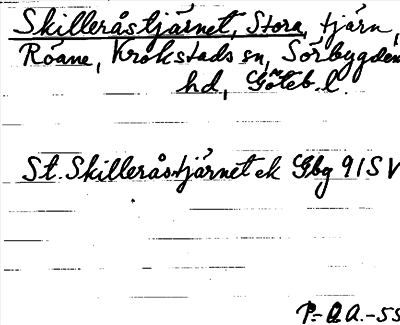 Skilleråstjärnet, Stora, tjärn,
Röane, Krokstads sn, Sörbygdens
hd, Göteb. l.
St. Skilleråstjärnet ek Gbg 91 SV
P.- Q A.-55